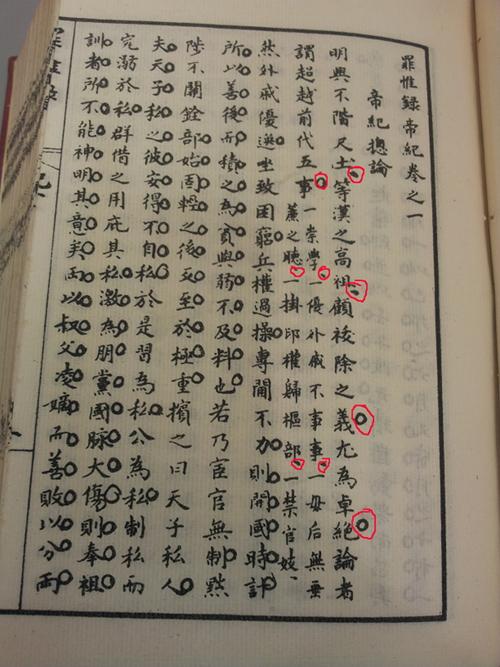 罪惟錄帝紀卷之一
帝紀總論
明興不階尺土等漢之高祖顧祓除之義尤為卓絕論者
謂超越前代五事一崇學一優外戚不事事一母后無垂
簾之聽一掛印權歸樞部一禁官妓
然外戚優選坐致困竆兵權過操專閫不力則開國時計
所以善後而積之為貧與弱不及料也若乃宦官無制㷓
陛不關銓部始固輕之後反至於極重擯之曰天子私人
夫天子私之彼安得不自私於是習為私公為私制私而
究溺於私群借之用庇其私激為朋黨國脉大傷則奉祖
訓者所不能神明其意矣而以叔父凌嫡而善敗以分兩